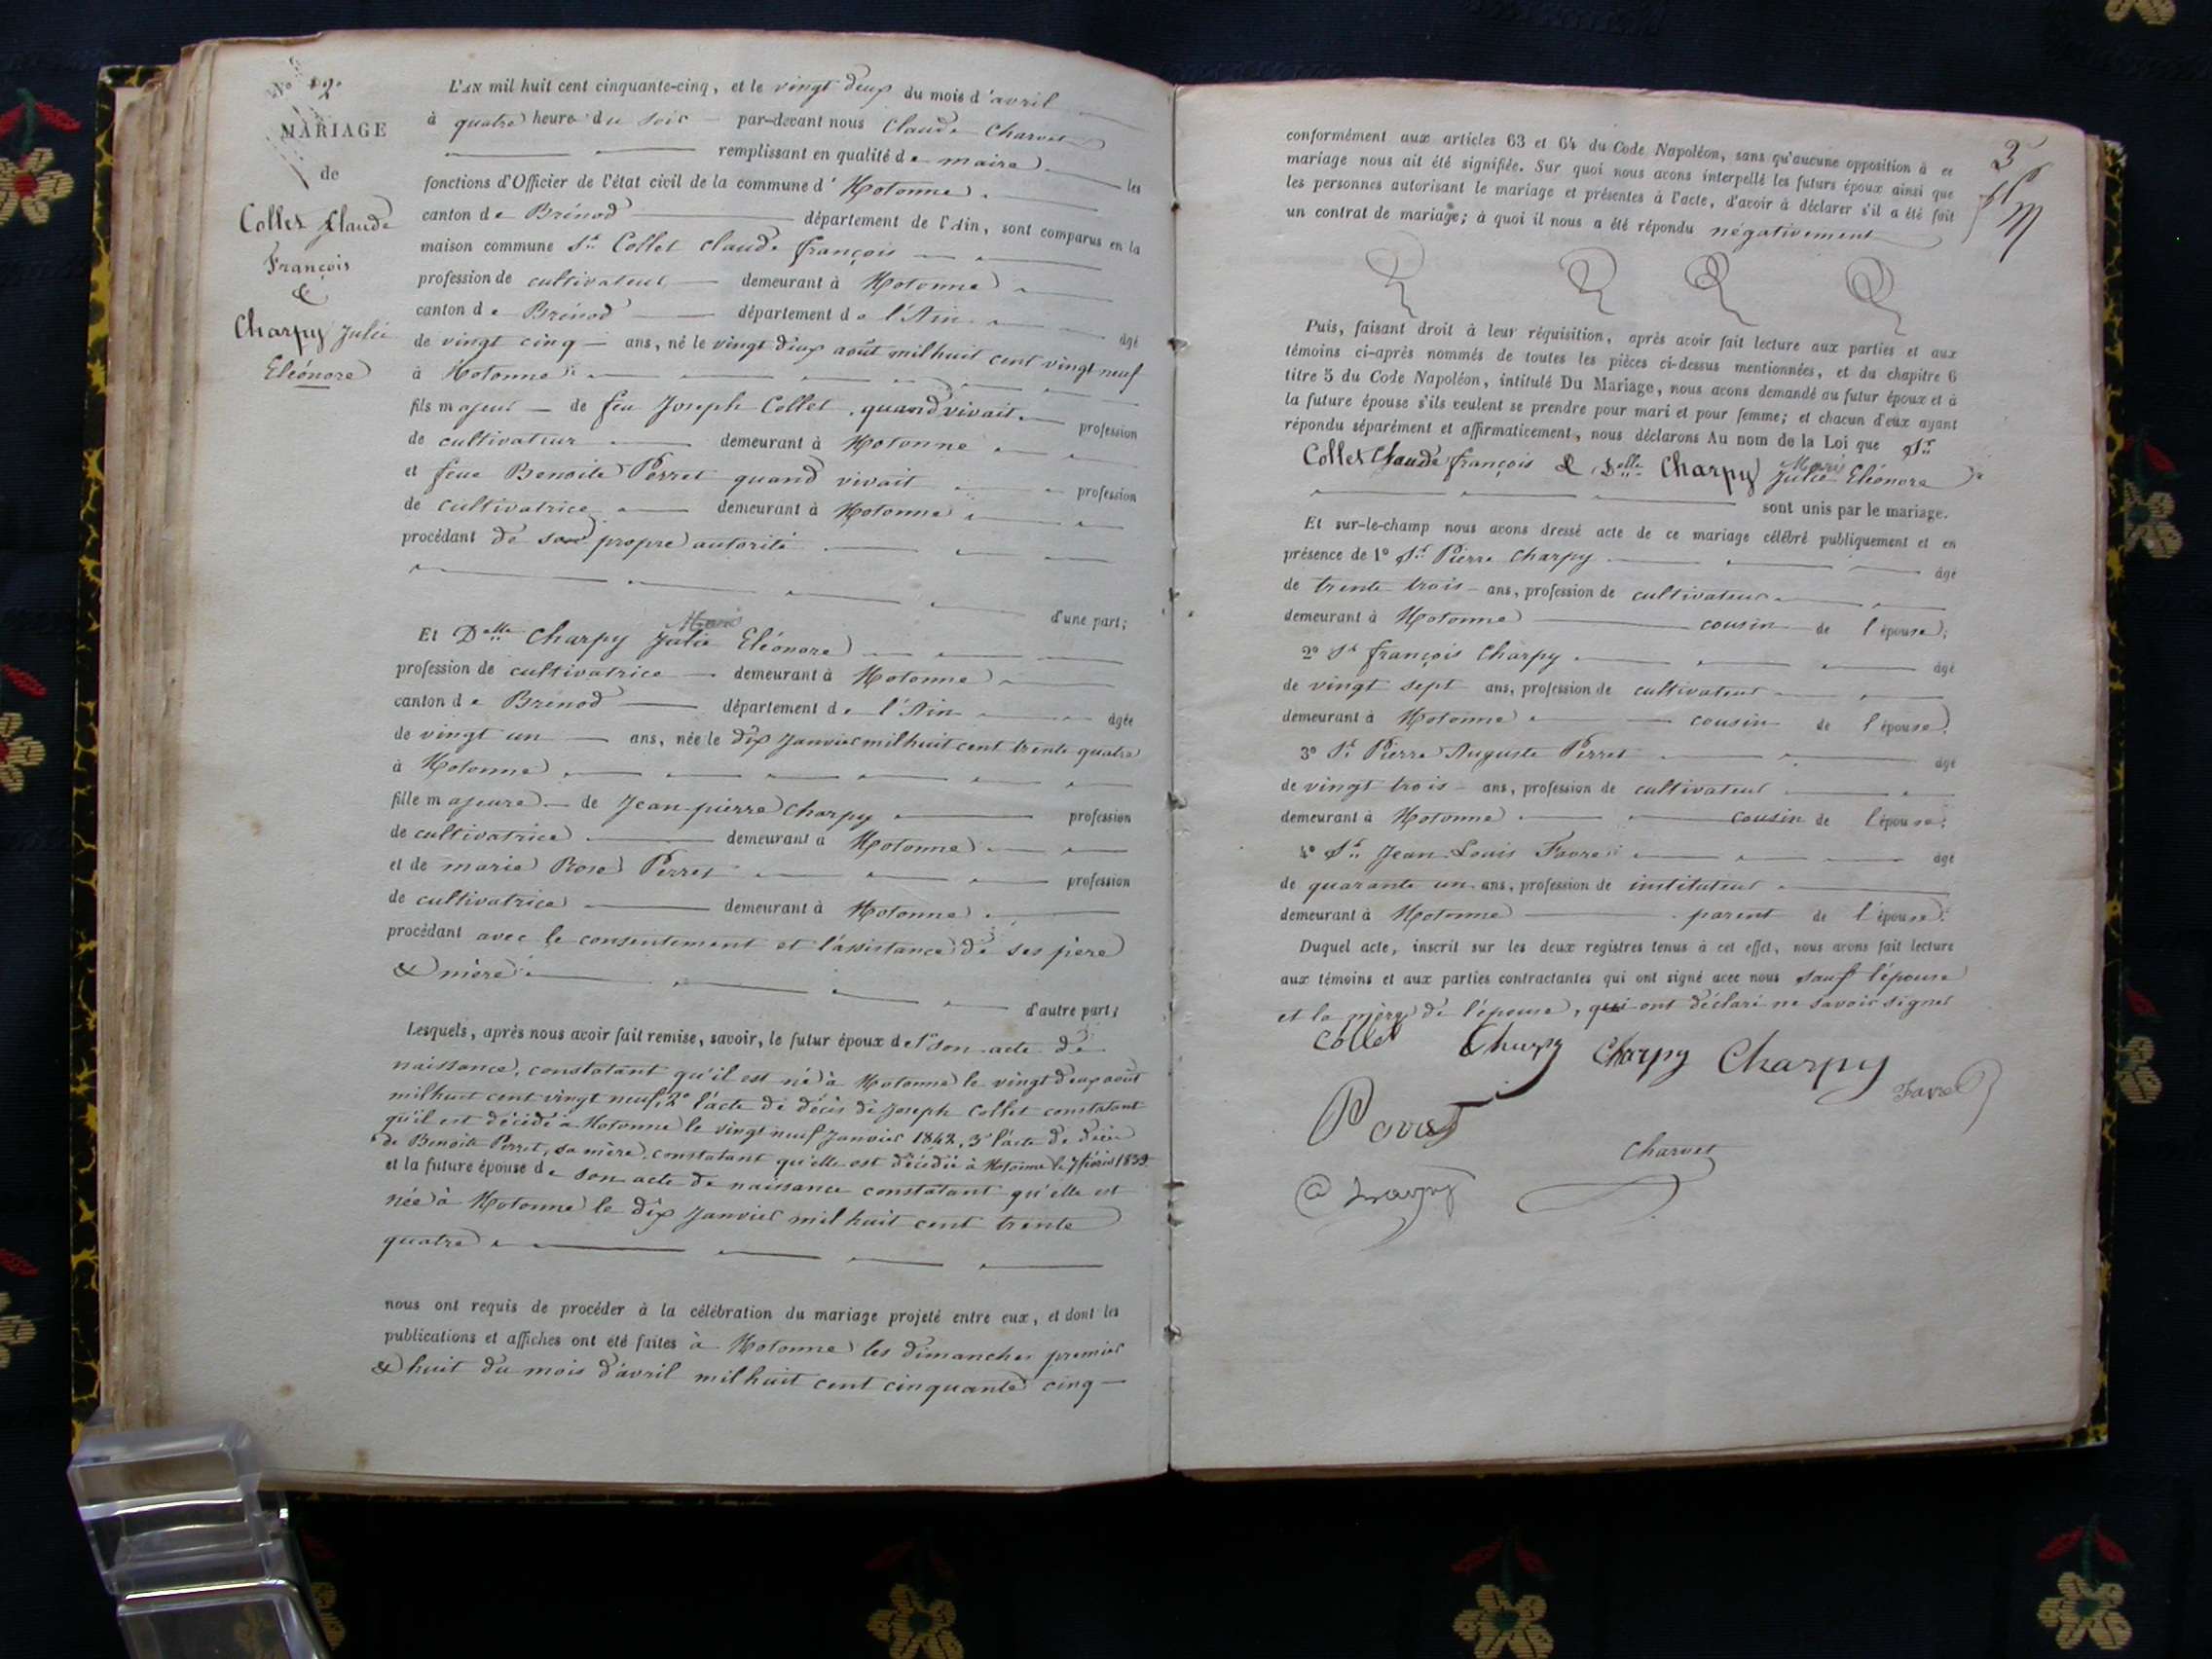 N° 2.
MARIAGE
de
Collet Claude
François
&
Charpy Julie
Eléonore
L'AN mil huit cent cinquante-cinq, et le vingt deux du mois d'avril
à quatre heure du soir par-devant nous Claude Charvet
remplissant en qualité de maire les
fonctions d'Officier de l'état civil de la commune d'Hotonne.
canton de Brénod département de l'Ain, sont comparus en la
maison commune Sr Collet Claude françois
profession de cultivateur demeurant à Hotonne
canton de Brénod département de l'Ain âgé
de vingt cinq ans, né le vingt deux août mil huit cent vingt neuf
à Hotonne
fils majeur de feu Joseph Collet, quand vivait profession
de cultivateur demeurant à Hotonne
et feue Benoite Perret quand vivait profession
de cultivatrice demeurant à Hotonne
procédant de son propre autorité
d'une part;
Et Delle Charpy Julie Marie Eléonore
profession de cultivatrice demeurant à Hotonne
canton de Brénod département de l'Ain âgée
de vingt un ans, née le dix Janvier mil huit cent trente quatre
à Hotonne
fille majeure de Jean-pierre Charpy profession
de cultivatrice demeurant à Hotonne
et de marie Rose Perret profession
de cultivatrice demeurant à Hotonne
procédant avec le consentement et l'assistance de ses père
& mère
d'autre part;
Lesquels, après nous avoir fait remise, savoir, le futur époux de 1° son acte de
naissance, constatant qu'il est né à Hotonne le vingt deux août
mil huit cent vingt neuf, 2° l'acte de décès de Joseph Collet constatant
qu'il est décédé à Hotonne le vingt neuf Janvier 1842, 3° l'acte de décès
de Benoite Perret, sa mère, constatant qu'elle est décédée à Hotonne le 7 février 1839
et la future épouse de son acte de naissance constatant qu'elle est
née à Hotonne le dix Janvier mil huit cent trente
quatre
nous ont requis de procéder à la célébration du mariage projeté entre eux, et dont les
publications et affiches ont été faites à Hotonne les dimanches premier
& huit du mois d'avril mil huit cent cinquante cinq
3
conformément aux articles 63 et 64 du Code Napoléon, sans qu'aucune opposition à ce
mariage nous ait été signifiée. Sur quoi nous avons interpellé les futurs époux ainsi que
les personnes autorisant le mariage et présentes à l'acte, d'avoir à déclarer s'il a été fait
un contrat de mariage; à quoi il nous a été répondu négativement
Puis, faisant droit à leur réquisition, après avoir fait lecture aux parties et aux
témoins ci-après nommés de toutes les pièces ci-dessus mentionnées, et du chapitre 6
titre 5 du Code Napoléon, intitulé Du Mariage, nous avons demandé au futur époux et à
la future épouse s'ils veulent se prendre pour mari et pour femme; et chacun d'eux ayant
répondu séparément et affirmativement, nous déclarons Au nom de la Loi que Sr
Collet Claude françois & Delle Charpy Julie Marie Eléonore
sont unis par le mariage.
Et sur-le-champ nous avons dressé acte de ce mariage célébré publiquement et en
présence de 1° Sr Pierre Charpy âgé
de trente trois ans, profession de cultivateur
demeurant à Hotonne cousin de l'épouse;
2° Sr françois Charpy âgé
de vingt sept ans, profession de cultivateur
demeurant à Hotonne cousin de l'épouse;
3° Sr Pierre Auguste Perret âgé
de vingt trois ans, profession de cultivateur
demeurant à Hotonne cousin de l'épouse;
4° Sr Jean Louis Favre âgé
de quarante un ans, profession de instituteur
demeurant à Hotonne parent de l'épouse.
Duquel acte, inscrit sur les deux registres tenus à cet effet, nous avons fait lecture
aux témoins et aux parties contractantes qui ont signé avec nous sauf l'épouse
et la mère de l'épouse, qui ont déclaré ne savoir signer
Collet Charpy Charpy Charpy
Favre
Perret
Charvet
Charpy